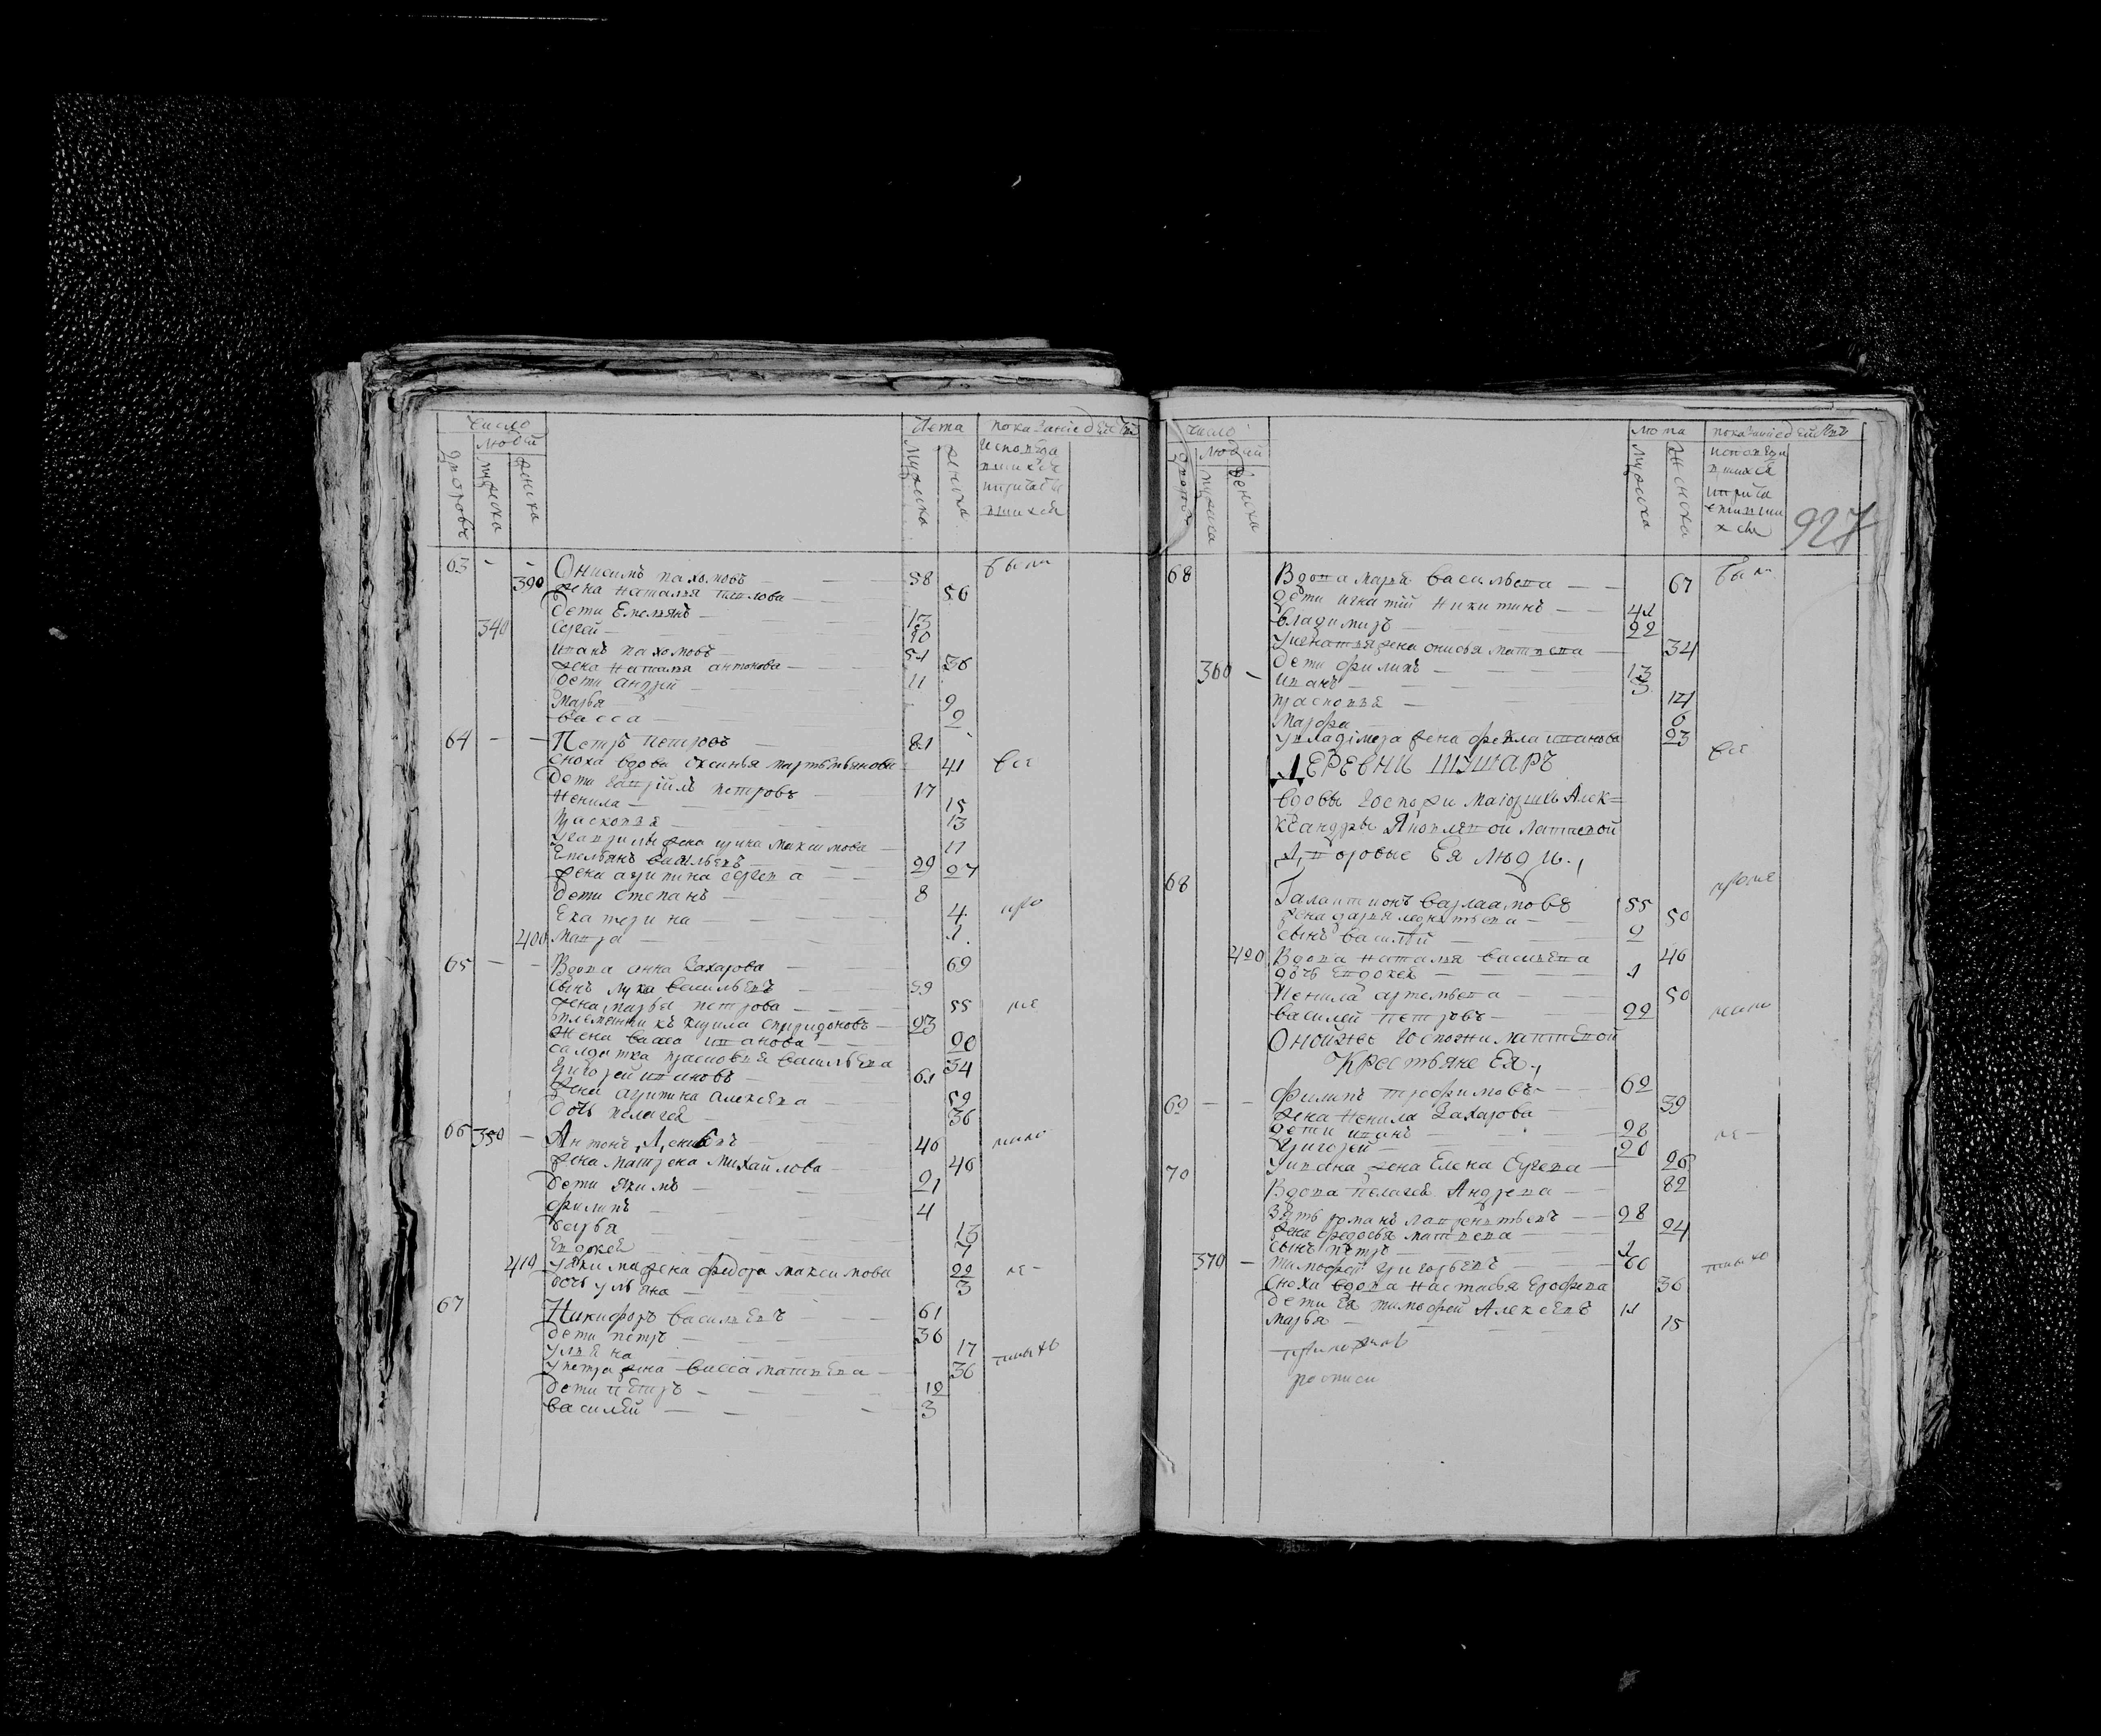 число лета показание действъ
дворовъ людей мужска женска
мужска женска исповеда
вшихся
и причасти
вшихся
63 - - Онисимъ пахомовъ 58 были
390 жена наталья павлова 56
дети Емельянъ 13
340 Сергей 10
иванъ пахомовъ 51
жена наталья антонова 36
дети андрей 11
Марья 9
васса 2
64 - - Петръ петровъ 81
сноха вдова Аксинья мартемьянова 41 все
дети гаврiилъ петровъ 17
Ненила 15
Прасковья 13
у гаврилы жена ирина максимова 17
Емельянъ васильевъ 29
жена агрипина сергева 27
дети степанъ 8
Екатерина 4 про
400 Мавра 1
65 - - Вдова анна Захарова 69
сынъ лука васильевъ 59
жена марья петрова 55 ме
племянникъ кирила спиридоновъ 23
жена васса иванова 20
салдатка прасковья васильева 34
григорей ивановъ 61
жена агрипина алексева 59
дочь пелагея 36
66 350 - Антонъ Денисовъ 40 жено
жена матрена михайлова 40
дети якимъ 21
филипъ 4
дарья 13
Евдокея 7
410 у якима жена федора максимова 22 ме
дочь ульяна 3
67 Никифоръ васильевъ 61
дети петръ 36
ульяна 17
у петра жена васса матвева 36 выхъ
дети петръ 12
василей 3
число лета показание действъ
дворовъ людей мужска женска
мужска женска исповеда
вшихся
и прича
стивши
хся
927
68 Вдова марья васильева 67 были
дети игнатiй никитинъ 41
владимиръ 22
у игнатья жена онисья матвева 34
дети филипъ 13
360 - иванъ 3
прасковья 14
марфа 6
у владiмера жена фекла иванова 23 все
ДЕРЕВНИ ШУШАРЪ
вдовы госпожи маiорши Алек=
ксандры Яковлевой Лаптевой
Дворовые Ея люди
68 Галактионъ варлаамовъ 55 проме
жена дарья леонтьева 50
сынъ василей 2
420 Вдова наталья васильева 40
дочь Евдокея 1
Ненила артемьева 50
василей петровъ 22
Онойже госпожи лаптевой
Крестьяне Ея
69 - - филипъ трофимовъ 62
жена ненила Захарова 39
дети иванъ 28 ме
григорей 20
у ивана жена Елена сергева 26
70 Вдова пелагея Андрева 82
Зять романъ лаврентьевъ 28
жена федосья матвева 24
сынъ петръ 1
370 - тимофей григорьевъ 60 выхъ
сноха вдова настасья Ерофева 36
дети Ея тимофей Алексевъ 11
марья 15
росписи